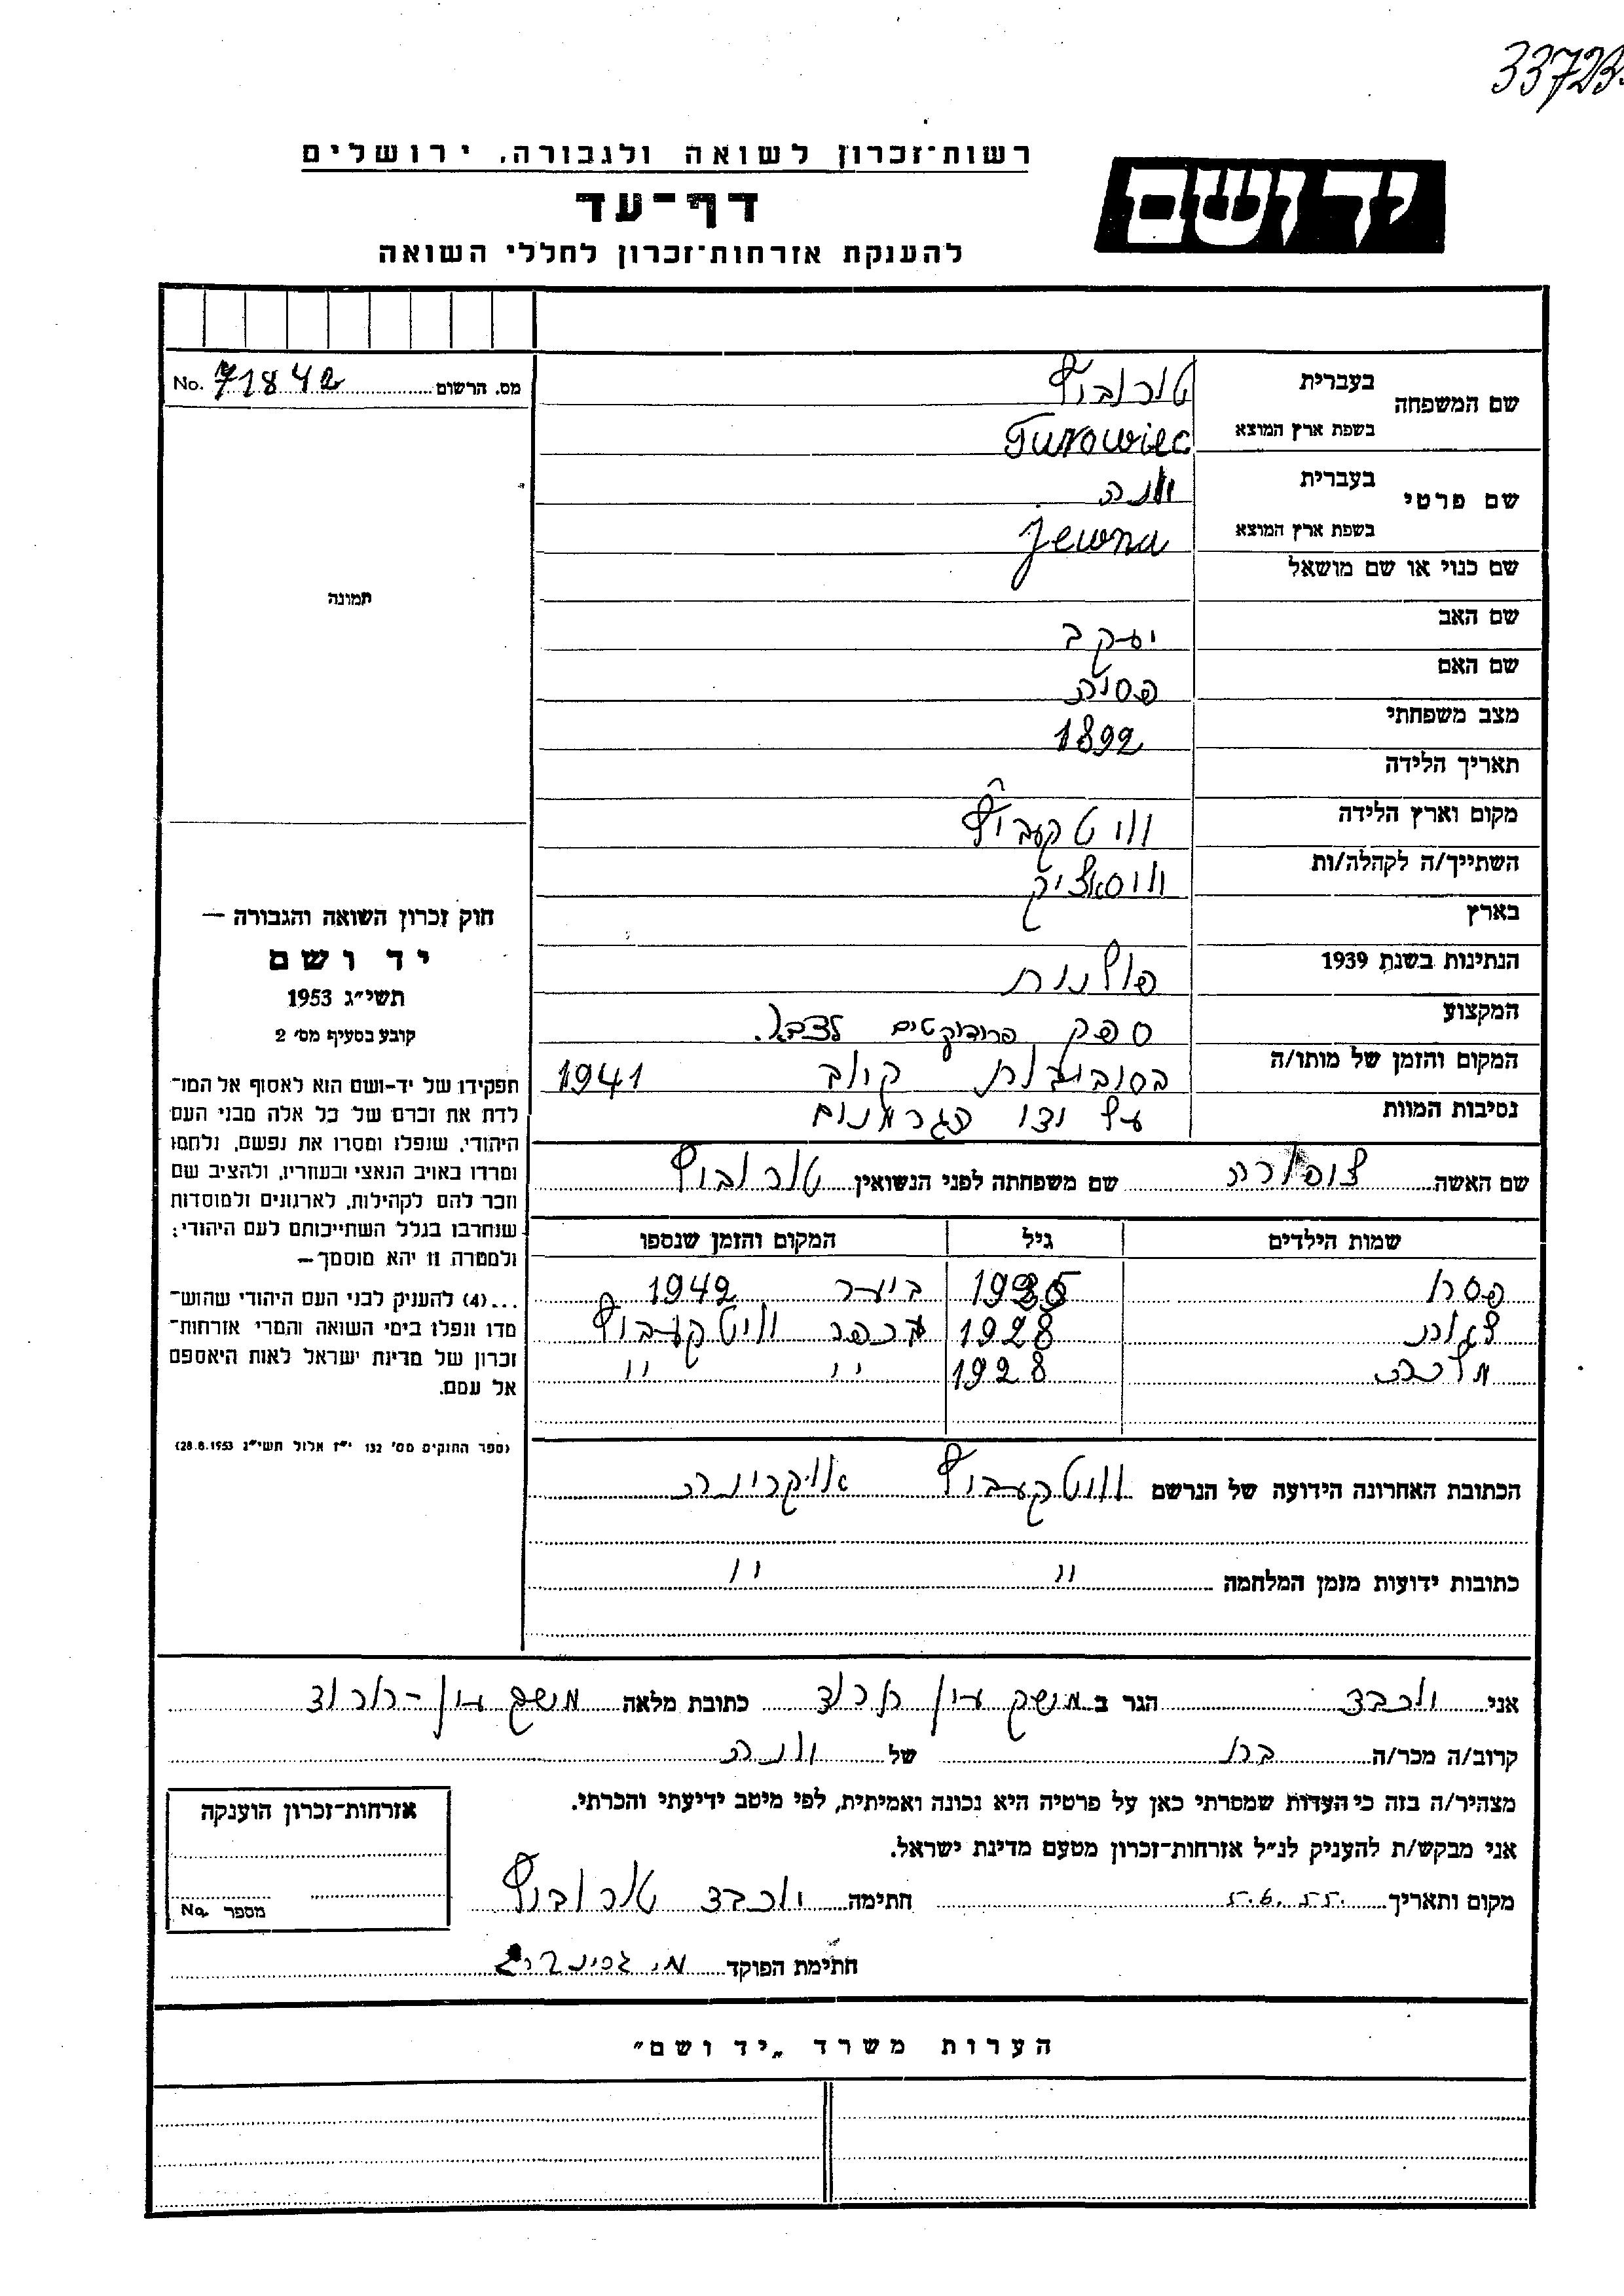 33723
רשות־זכרון לשואה ולגבורה, ירושלים
יד ושם
דף־עד
להענקת אזרחות־זכרון לחללי השואה
מס. הרשום No. 71842
שם המשפחה בעברית טורוביץ
בשפת ארץ המוצא Turowiec
שם פרטי בעברית יונה
בשפת ארץ המוצא Jewna
שם כנוי או שם מושאל
שם האב יעקב
שם האם פסיה
מצב משפחתי 1892
תאריך הלידה
מקום וארץ הלידה וויטקעביץ
השתייך/ה לקהלה/ות
בארץ
הנתינות בשנת 1939 פולנית
המקצוע ספק פרודוקטים לצבא.
המקום והזמן של מותו/ה בסביבות קולב 1941
נסיבות המוות על ידי הגרמנים
שם האשה ציפורה שם משפחתה לפני הנשואין טורוביץ
תמונה
חוק זכרון השואה והגבורה —
יד ושם
תשי״ג 1953
קובע בסעיף מס׳ 2
תפקידו של יד-ושם הוא לאסוף אל המו־
לדת את זכרם של כל אלה מבני העם
היהודי, שנפלו ומסרו את נפשם, נלחמו
ומרדו באויב הנאצי ובעוזריו, ולהציב שם
וזכר להם לקהילות, לארגונים ולמוסדות
שנחרבו בגלל השתייכותם לעם היהודי;
ולמטרה זו יהא מוסמך—
...(4) להעניק לבני העם היהודי שהוש־
מדו ונפלו בימי השואה והמרי אזרחות־
זכרון של מדינת ישראל לאות היאספם
אל עמם.
(ספר החוקים מס׳ 132 י״ז אלול תשי״ג 28.8.1953)
שמות הילדים גיל המקום והזמן שנספו
ביער 1942
1928 בכפר וויטקעביץ
מלכה 1928 " "
הכתובת האחרונה הידועה של הנרשם וויטקעביץ אוקרינה
כתובות ידועות מזמן המלחמה " "
אני יוכבד הגר ב מושק עין חרוד כתובת מלאה משק עין-חרוד
קרוב/ה מכר/ה בת של יונה
מצהיר/ה בזה כי העדות שמסרתי כאן על פרטיה היא נכונה ואמיתית, לפי מיטב ידיעתי והכרתי.
אני מבקש/ת להעניק לנ״ל אזרחות־זכרון מטעם מדינת ישראל.
מקום ותאריך 5.6.55. חתימה יוכבד טורוביץ
חתימת הפוקד
אזרחות־זכרון הוענקה
מספר No.
הערות משרד „יד ושם״